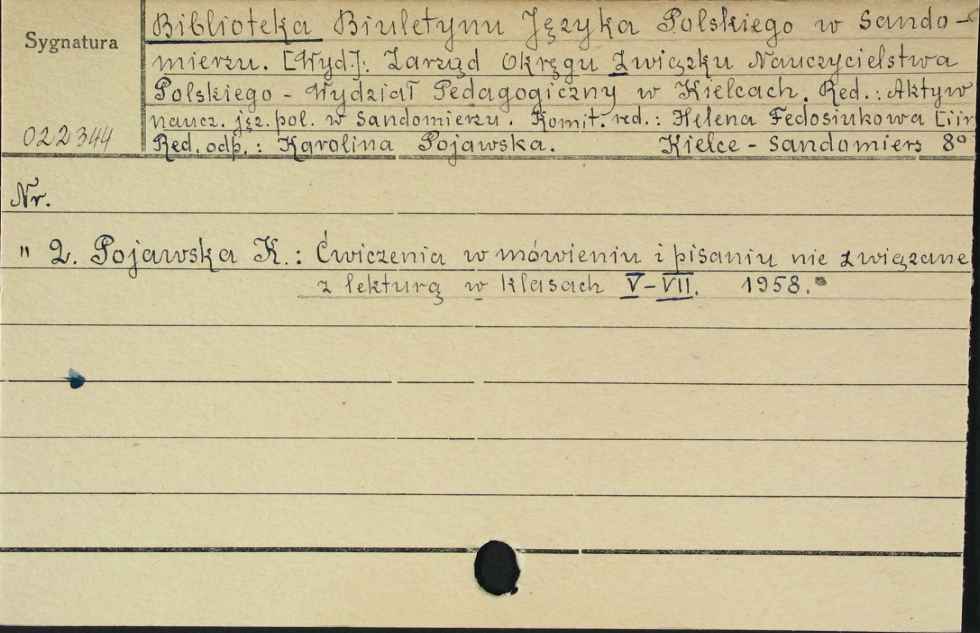 Sygnatura
022344
Biblioteka Biuletynu Języka Polskiego w Sando-
mierzu. [Wyd.]: Zarząd Okręgu Związku Nauczycielstwa
Polskiego - Wydział Pedagogiczny w Kielcach. Red.: Aktyw
naucz. jęz. pol. w Sandomierzu. Komit. red.: Helena Fedosiukowa [i in
Red. odp.: Karolina Pojawska. Kielce - Sandomierz 8°
Nr.
" 2. Pojawska K.: Ćwiczenia w mówieniu i pisaniu nie związane
z lekturą w klasach V-VII. 1958.